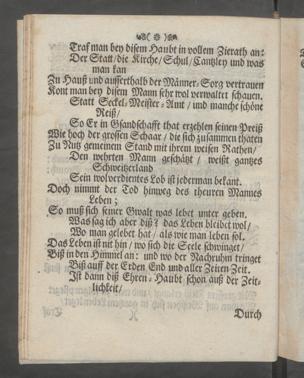 Traf man bey disem Haubt in vollem Zierath an:
Der Statt/die Kirche/Schul/Cantzley und was
man kan
Zu Hauß und ausserthalb der Männer-Sorg vertrauen
Kont man bey disem Mann sehr wol verwaltet schauen.
Statt Seckel-Meister-Amt / und manche schöne
Reiß/
So Er in Gsandschafft that erzehlen seinen Preiß
Wie hoch der grossen Schaar / die sich zusammen thaten
Zu Nutz gemeinem Stand mit ihrem weisen Rathen/
Den wehrten Mann geschätzt / weißt gantzes
Schweitzerland
Sein wol verdientes Lob ist jederman bekant.
Doch nimmt der Tod hinweg des theuren Mannes
Leben;
So muß sich seiner Gwalt was lebet unter geben.
Was sag ich aber diß? das Leben bleibet wol/
Wo man gelebet hat / als wie man leben sol.
Das Leben ist nit hin / wo sich die Seele schwinget/
Biß in den Himmel an: und wo der Nachruhm tringet
Biß auff der Erden End und aller Zeiten Zeit.
Ist dann diß Ehren-Haubt schon auß der Zeit-
lichkeit/
Durch